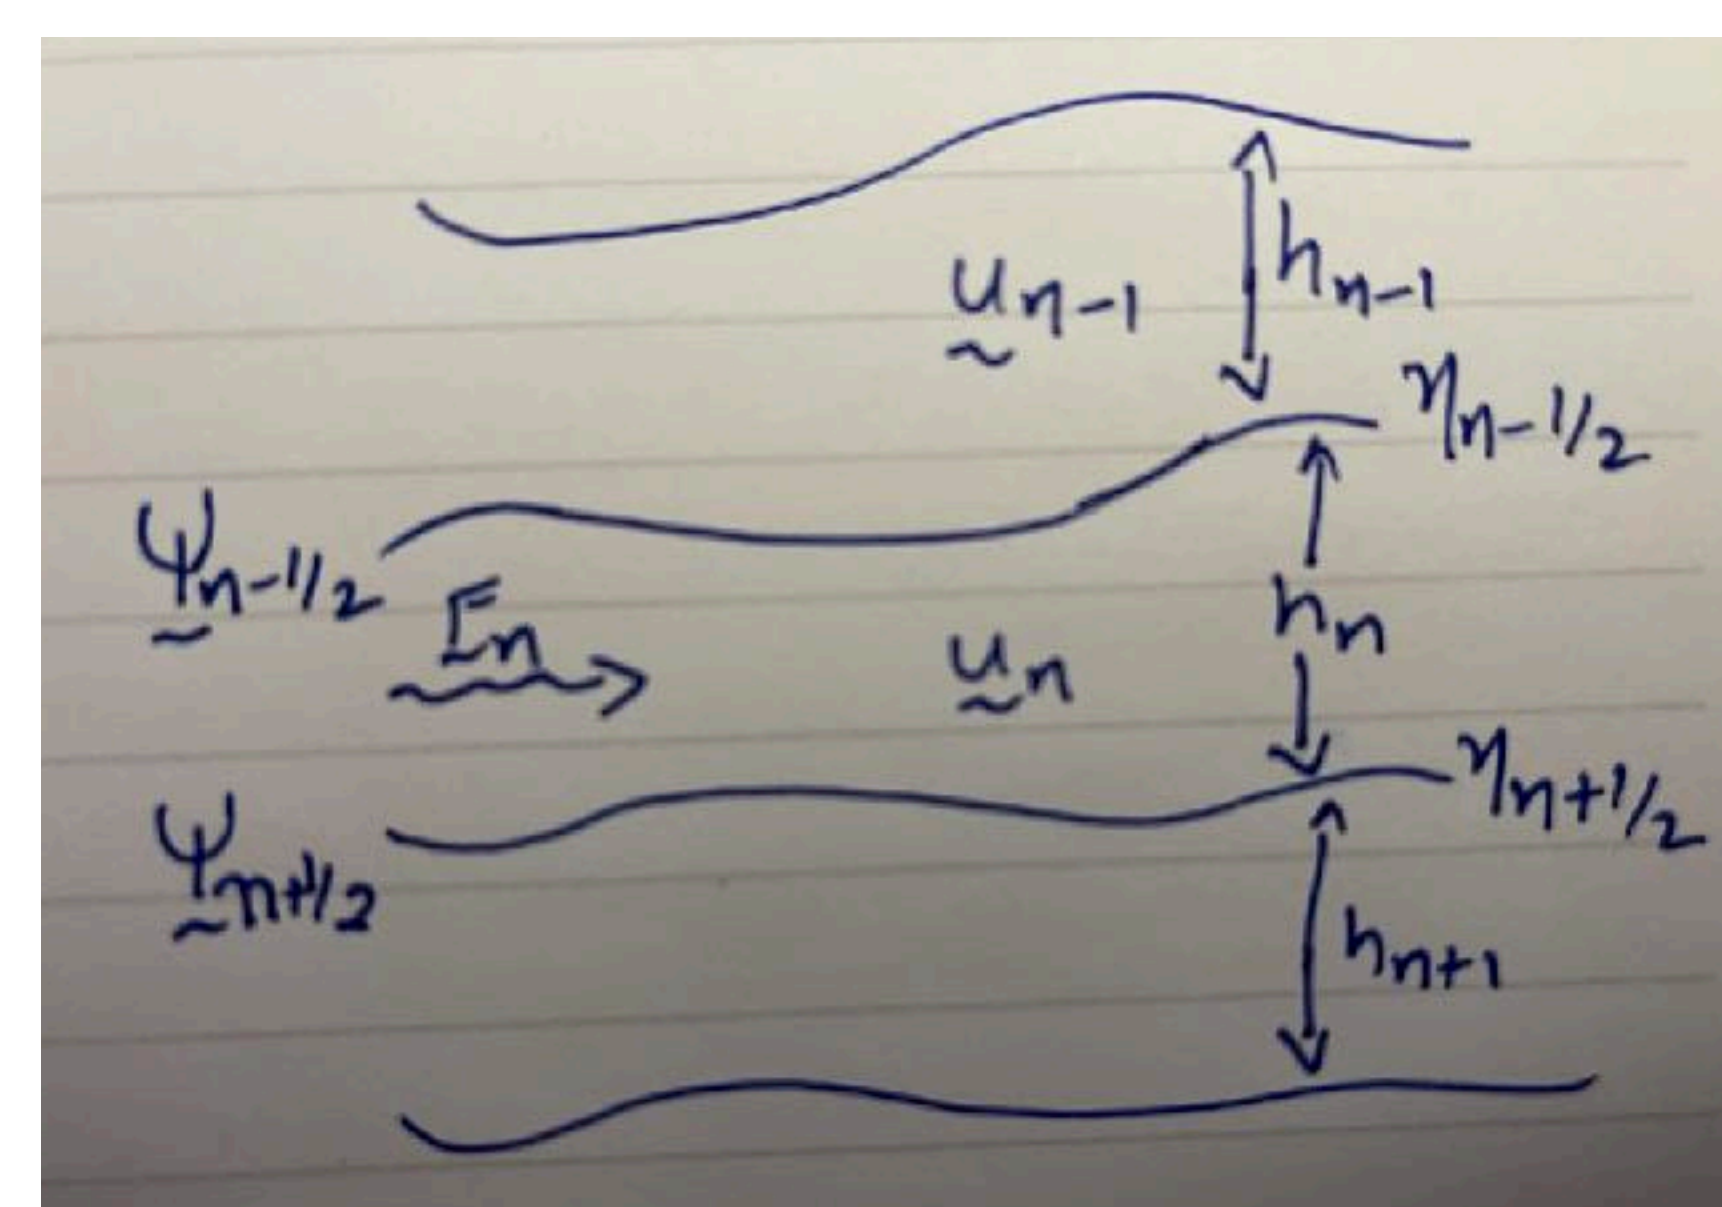 u_{n-1}
h_{n-1}
η_{n-1/2}
ψ_{n-1/2}
F_n
u_n
h_n
η_{n+1/2}
ψ_{n+1/2}
h_{n+1}